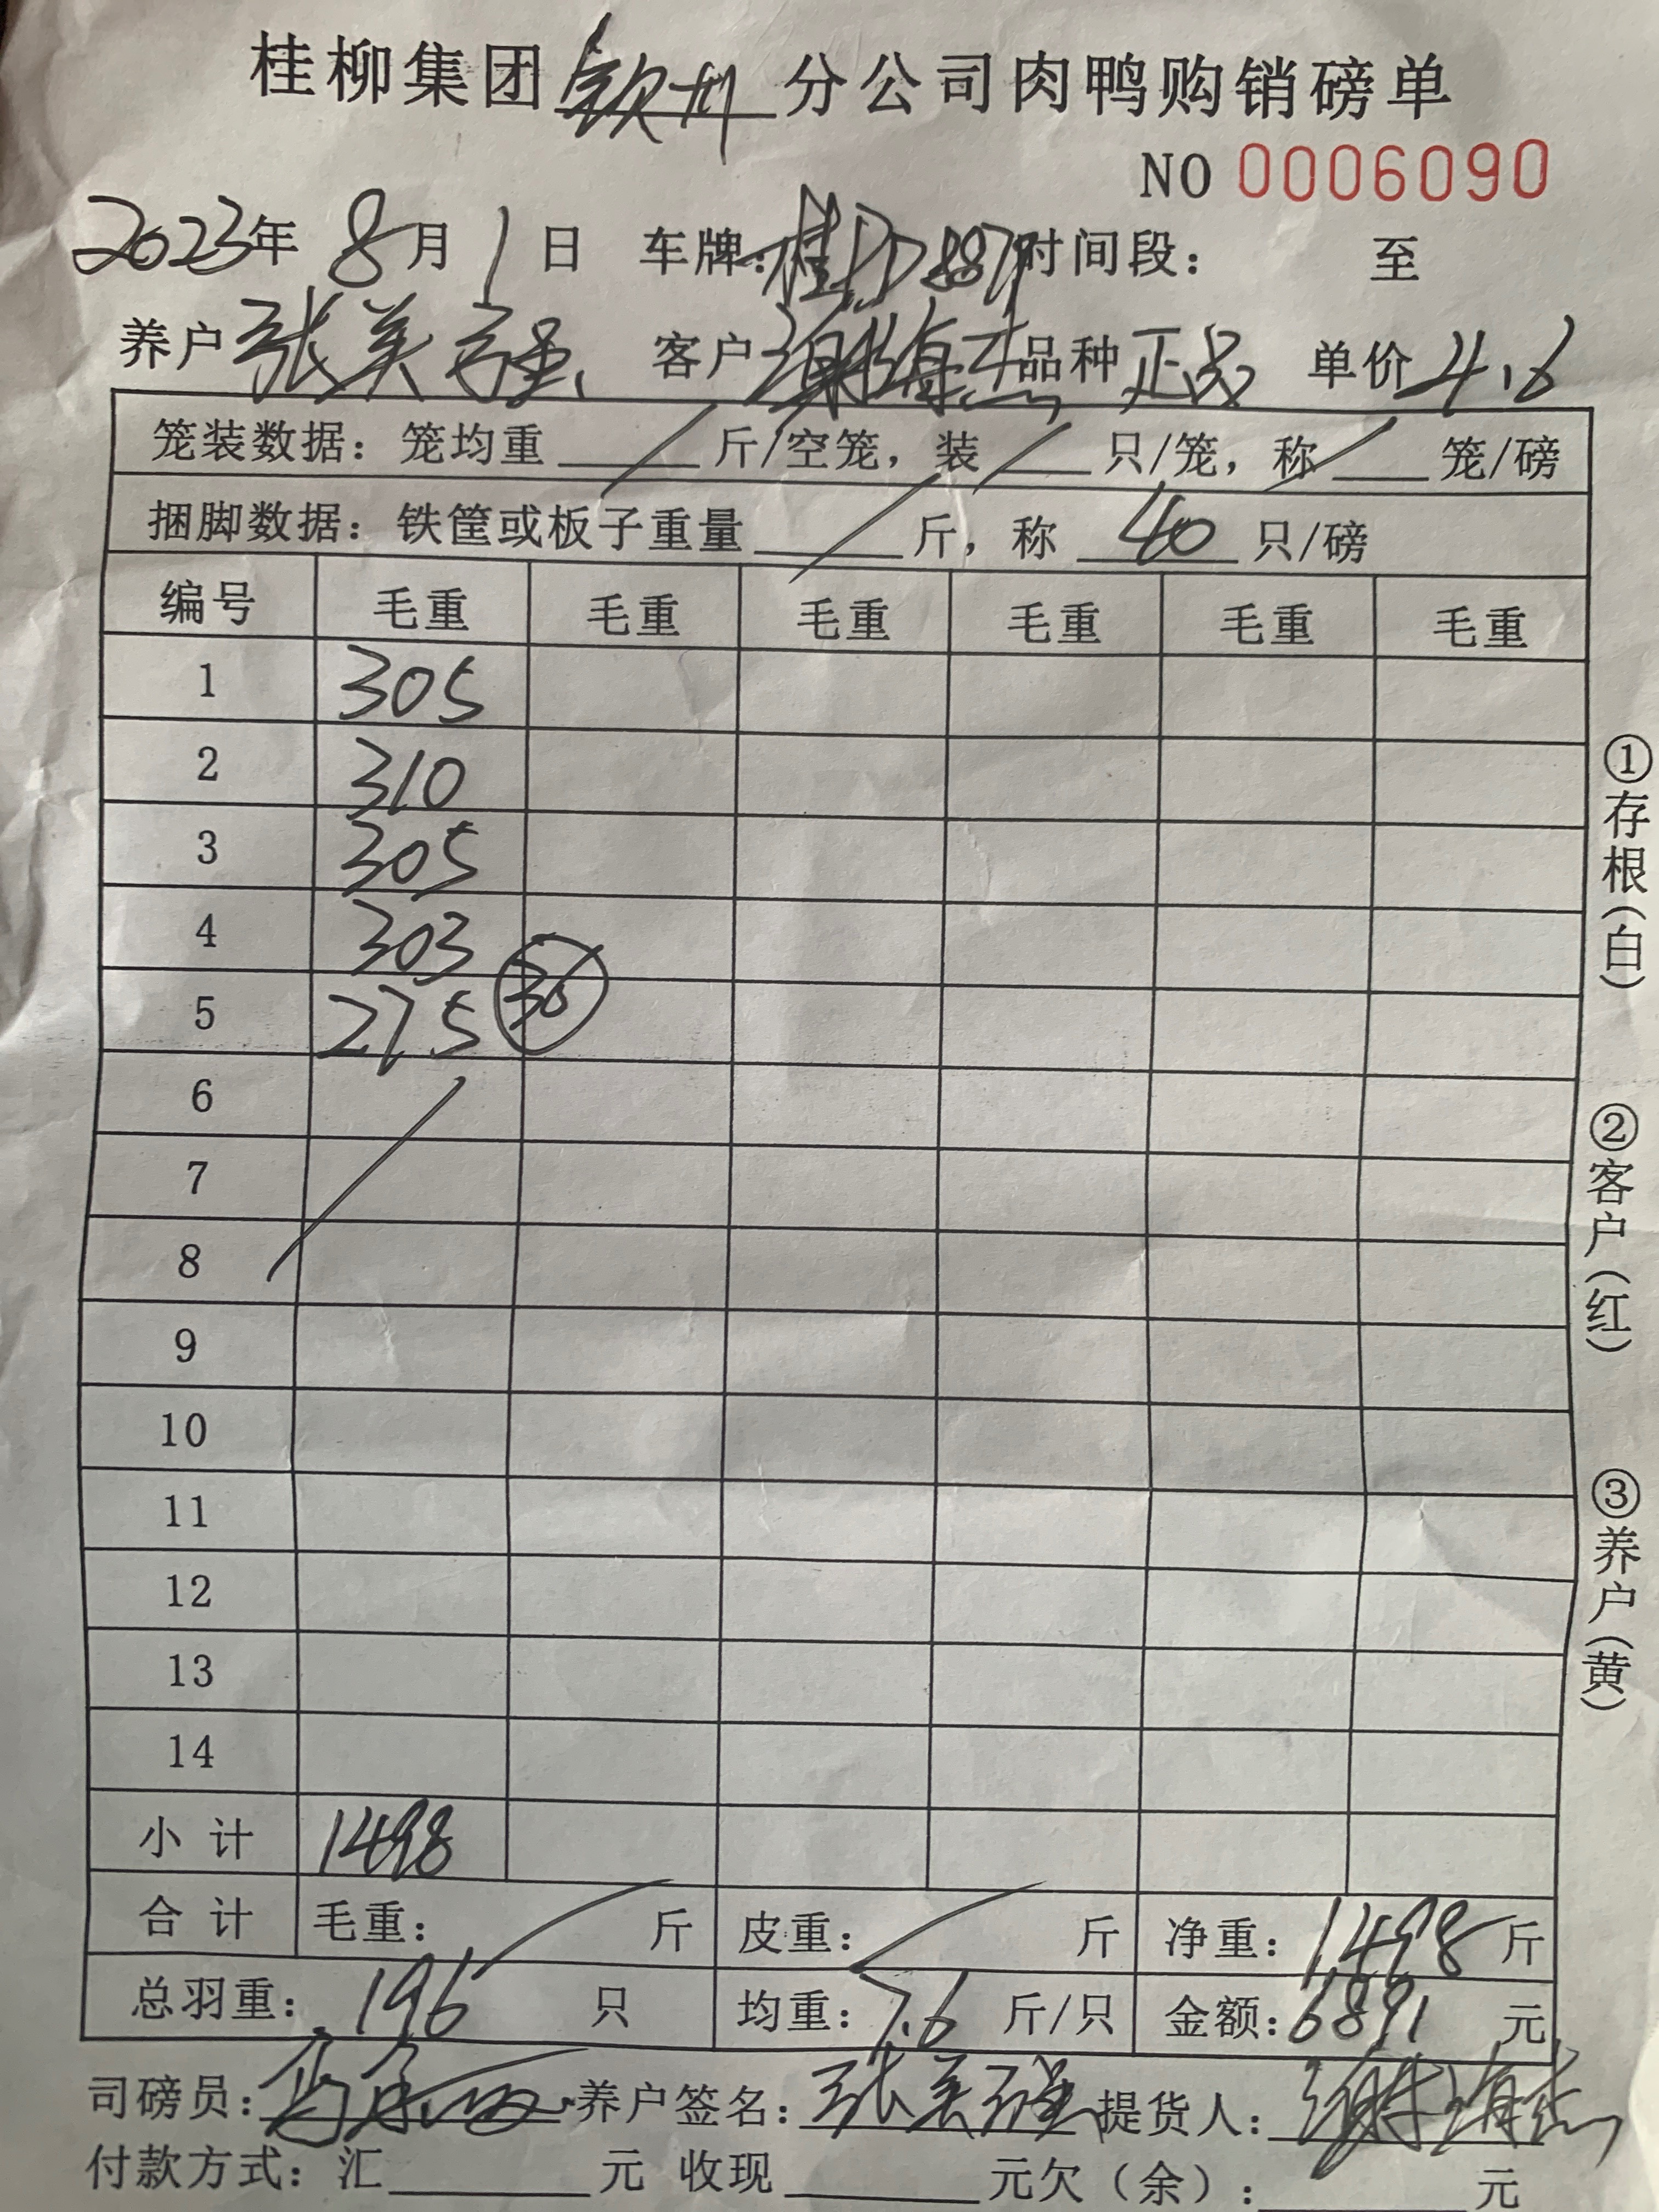 桂柳集团钦州分公司肉鸭购销磅单
NO 0006090
2023年 8月 1日 车牌: 时间段: 至
养户 张美强 客户 谢海杰 品种 正戈 单价 4.6
笼装数据: 笼均重 / 斤/空笼, 装 / 只/笼, 称 / 笼/磅
捆脚数据: 铁筐或板子重量 / 斤, 称 40 只/磅
编号 毛重 毛重 毛重 毛重 毛重 毛重
1 305
2 310
3 305
4 303
5 275 36
6
7
8
9
10
11
12
13
14
小计 1498
合计 毛重: / 斤 皮重: / 斤 净重: 1498 斤
总羽重: 196 只 均重: 7.6 斤/只 金额: 6891 元
司磅员: 养户签名: 张美强 提货人: 谢海杰
付款方式: 汇 元 收现 元欠(余): 元
①存根(白)
②客户(红)
③养户(黄)